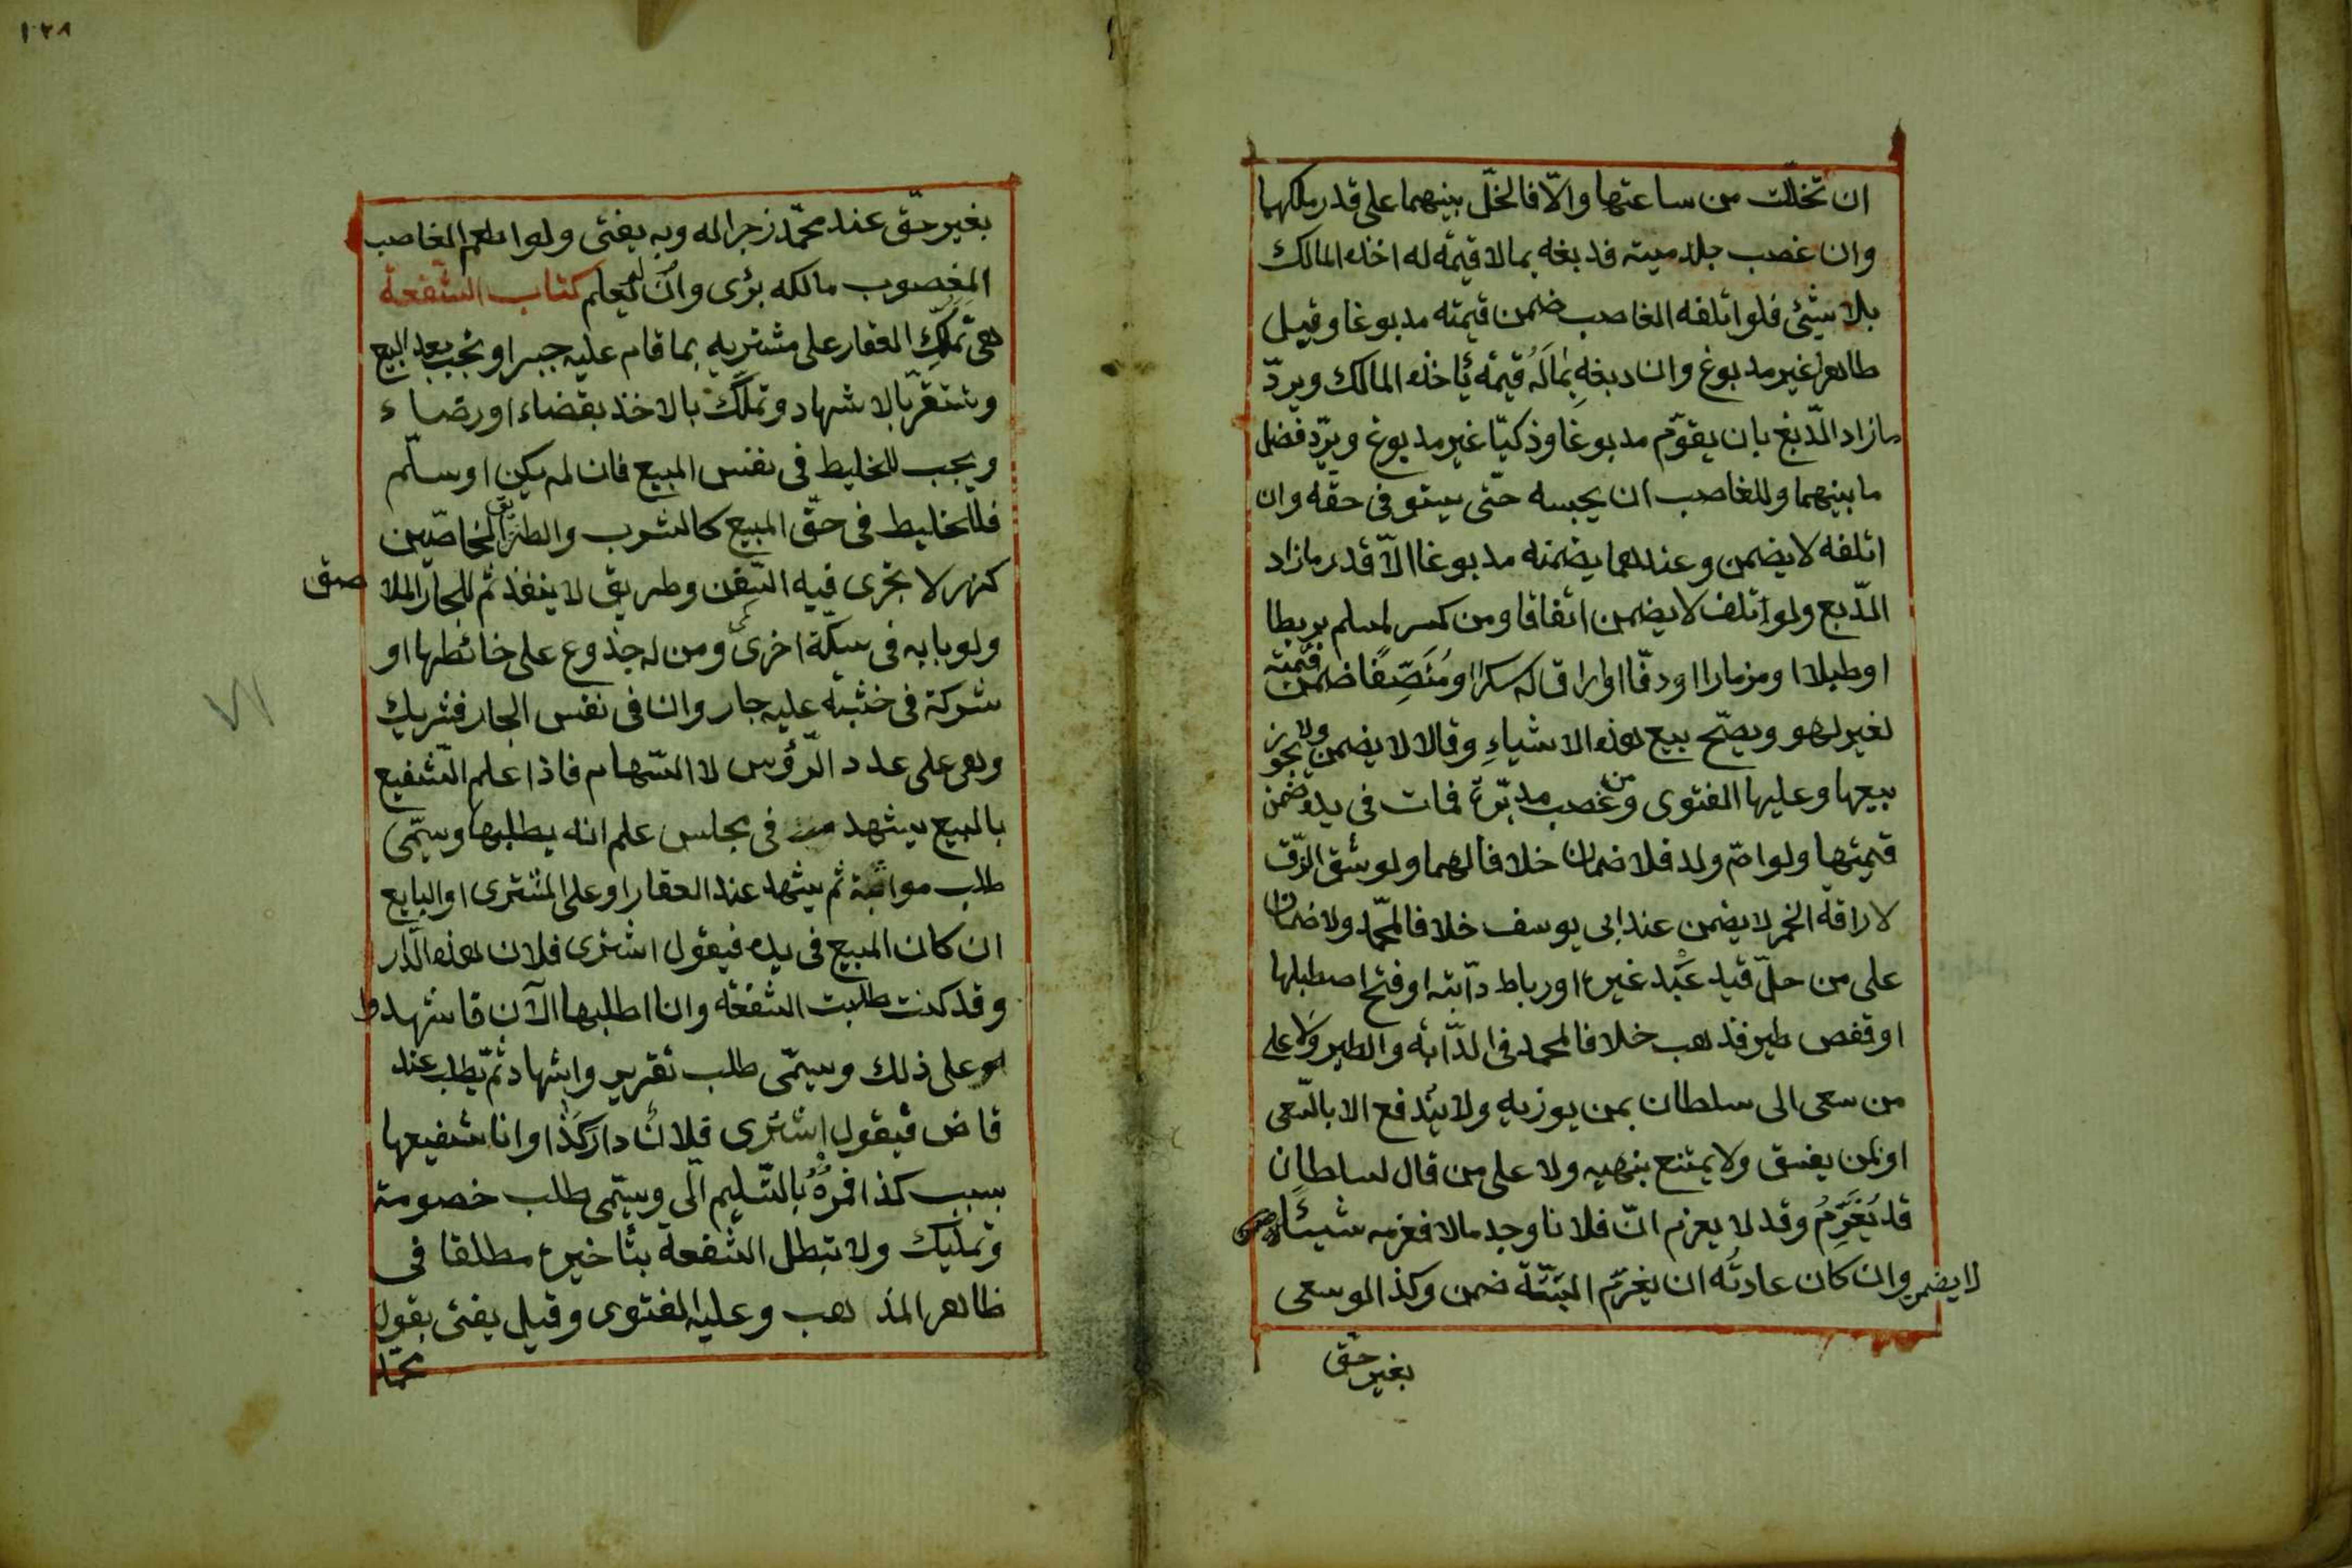 ان تخللت من ساعتها والّا فالخلّ بينهما على قدر ملكهما
وان غصب جلد ميتة فدبغه بما لا قيمة له اخذه المالك
بلا شئ فلو اتلفه الغاصب ضمن قيمته مدبوغا وقيل
طاهرا غير مدبوغ وان دبغه بماله قيمة يأخذه المالك ويردّ
مازاد الدّبغ بان يقوّم مدبوغا وذكيّا غير مدبوغ ويردّ فضل
ما بينهما وللغاصب ان يحبسه حتّى يستوفى حقّه وان
اتلفه لا يضمن وعندهما يضمنه مدبوغا الّا قدر مازاد
الدّبع ولو اتلف لا يضمن اتفاقا ومن كسر لمسلم بربطا
او طبلا او مزمارا او دفّا او اراق له سكرا او مُنَصِّفًا ضمن قيمته
لغير لهو ويصّح بيع هذه الاشياء وقالا لا يضمن ولا يجوز
بيعها وعليها الفتوى ومن غصب مدبّرة فمات فى يده ضمن
قيمتها ولو امّ ولد فلا ضمان خلافا لهما ولو شقّ الزّق
لاراقة الخمر لا يضمن عند ابى يوسف خلافا لمحمّد ولا ضمان
على من حلّ قيد عَبْد غيره او رباط دآبته او فتح اصطبلها
او قفص طير فذهب خلافا لمحمد فى الدّآبّة والطير ولا على
من سعى الى سلطان بمن يوزيه ولا يندفع الا بالسّعى
او بمن يفسق ولا يمتنع بنهيه ولا على من قال لسلطان
قد يُغَرِّمُ وقد لا يغرم انّ فلانا وجد مالا فغرمه شيئًا
لا يضمن وان كان عادتُه ان يغرّم البَتّة ضمن وكذا لو سعى
بغير حقّ
١٢٨
بغير حقّ عند محمّد زجرا له وبه يفتى ولو اطعم الغاصب
المغصوب مالكه برئ وان لم يعلم كتاب الشّفعة
هى تملّك العقار على مشتريه بما قام عليه جبرا وتجب بعد البيع
وتستقرّ بالاشهاد وتملّك بالاخذ بقضاء او رضاء
ويجب للخليط فى نفس المبيع فان لم يكن او سلّم
فللخليط فى حقّ المبيع كالشرب والطريق الخاصّين
كنهر لا تجرى فيه السّفن وطريق لا ينفذ ثم للجار الملا صق
ولو بابه فى سكّة اخرى ومن له جذوع على خائطها او
شركة فى خشبة عليه جار وان فى نفس الجار فشريك
وهى على عدد الرّؤس لا السّهام فاذا علم الشّفيع
بالبيع يشهد فى مجلس علم انه يطلبها ويسمّى
طلب مواثبة ثم يشهد عند العقار او على المشترى او البايع
ان كان المبيع فى يده فيقول اشترى فلان هذه الدّار
وقد كنت طلبت الشفعة وانا اطلبها الآن فاشهد
وا على ذلك ويسمّى طلب تقرير واشهاد ثم يطلب عند
قاض فيقول اشترى فلان دار كذا وانا شفيعها
بسبب كذا فمره بالتّسليم الىّ ويسمّى طلب خصومة
وتمليك ولا تبطل الشفعة بتأخيره مطلقا فى
ظاهر المذ هب وعليه الفتوى وقيل يفتى بقول
محمّد